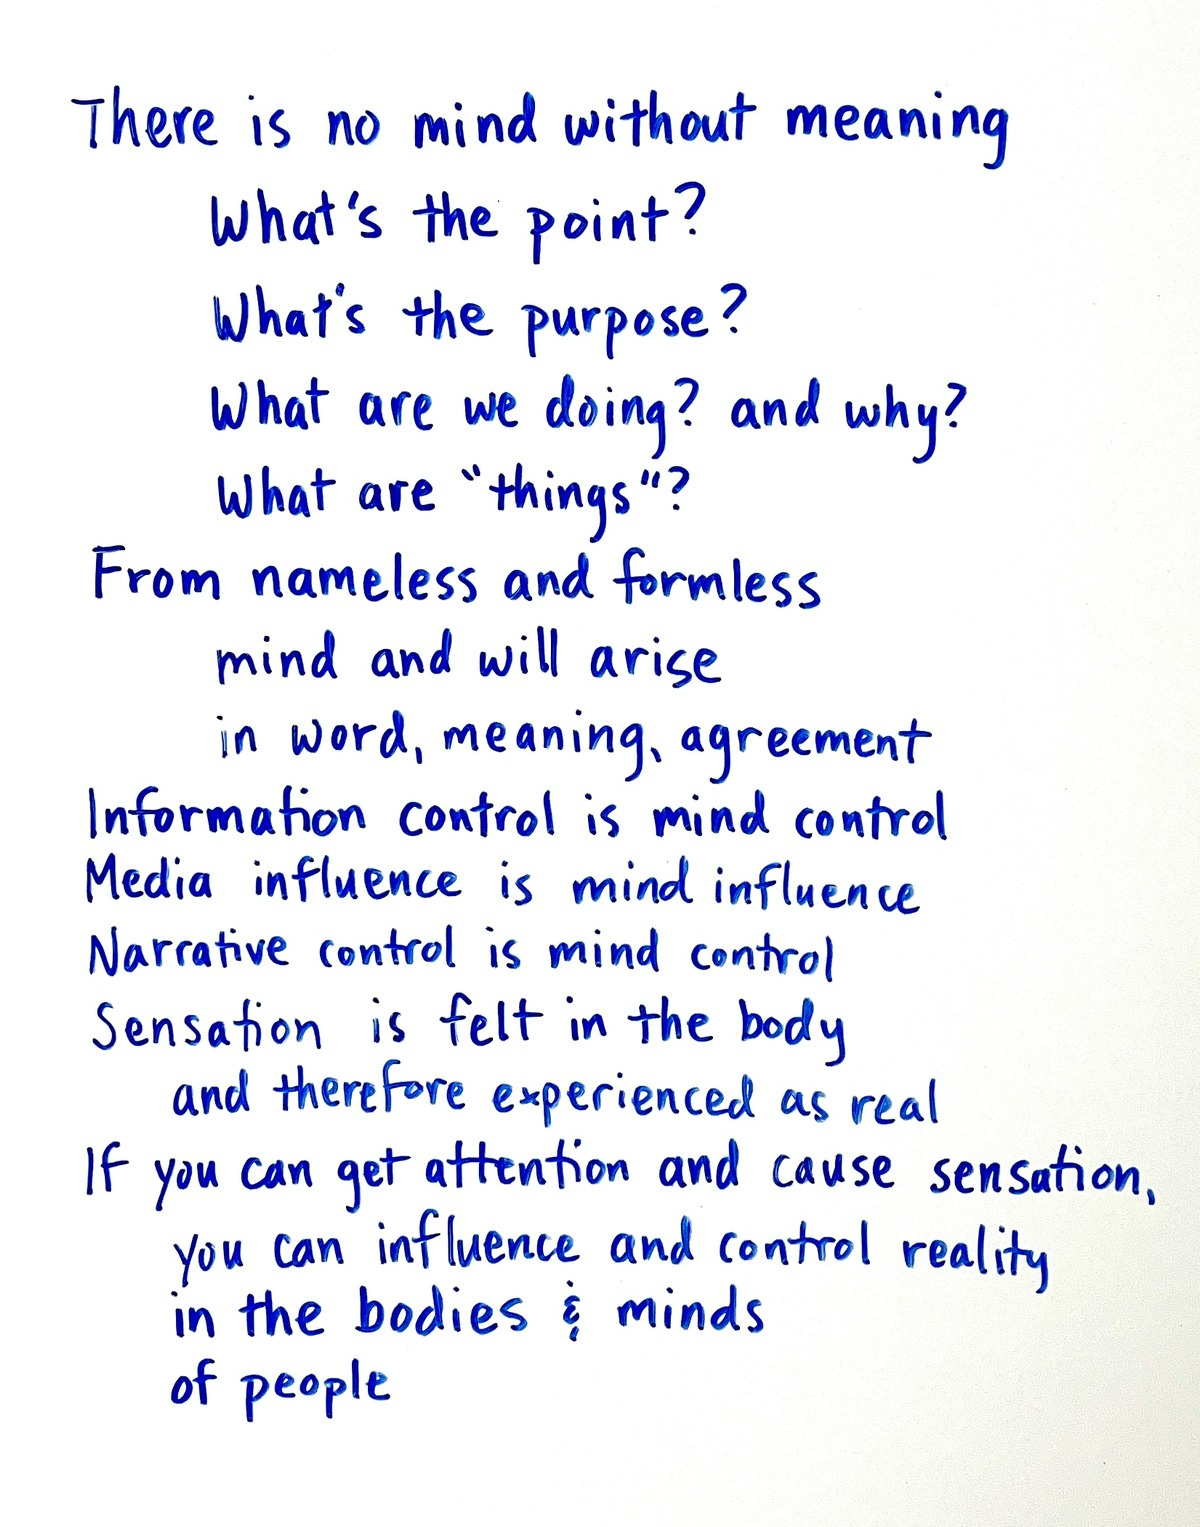 There is no mind without meaning
What's the point?
What's the purpose?
What are we doing? and why?
What are "things"?
From nameless and formless
mind and will arise
in word, meaning, agreement
Information control is mind control
Media influence is mind influence
Narrative control is mind control
Sensation is felt in the body
and therefore experienced as real
If you can get attention and cause sensation,
you can influence and control reality
in the bodies & minds
of people